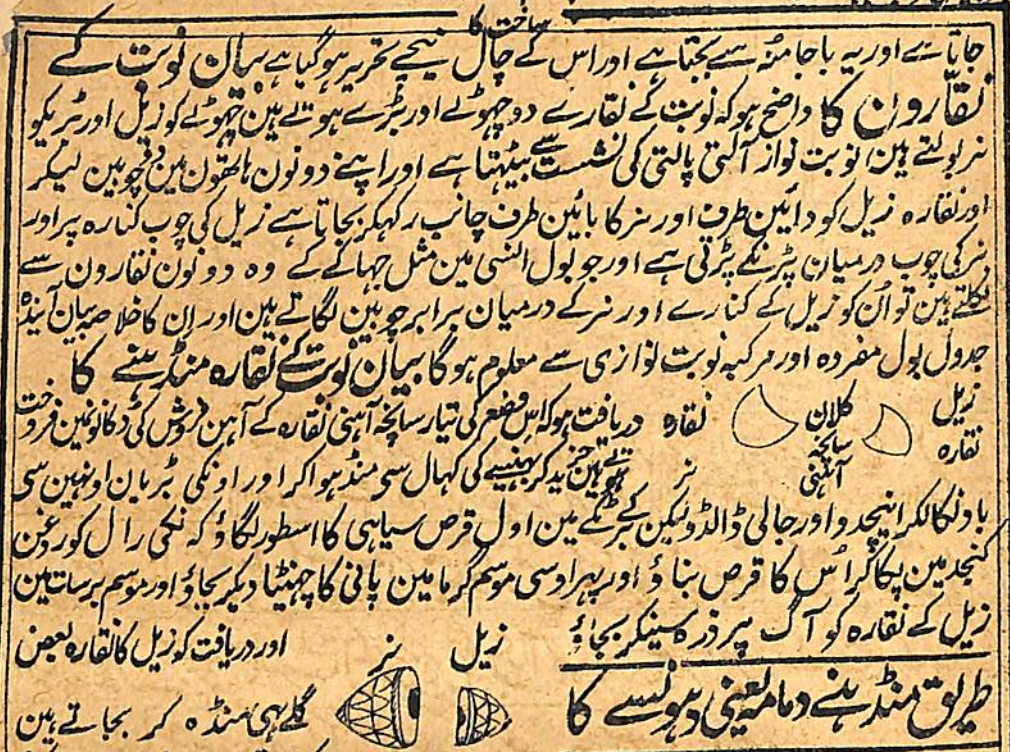 ساخت کا
جاتا ہے اور یہ باجا منہ سے بجتا ہے اور اس کے چال نیچے تحریر ہو گیا ہے بیان نوبت کے
نقارون کا واضح ہو کہ نوبت کے نقارے دو چھوٹے اور بڑے ہوتے ہین چھوٹے کو زیل اور بڑیکو
نر بولتے ہین نوبت نواز آلتی پالتی کی نشست سے بیٹھتا ہے اور اپنے دونون ہاتھون مین دو چوبین لیکر
اور نقارہ زیل کو دائین طرف اور نر کا بائین طرف چانب رکھکر بجاتا ہے زیل کی چوب کنارہ پر اور
نر کی چوب درمیان پڑنکے پڑتی ہے اور جو بول انسی مین مثل جھا کے کے وہ دونون نقارون سے
نکلتے ہین تو اُن کو زیل کے کنارے اور نر کے درمیان برابر چوبین لگاتے ہین اور ان کا خلاصہ بیان آیندہ
جدول بول مفردہ اور مرکبہ نوبت نوازی سے معلوم ہوگا بیان نوبت کے نقارہ منڈہنے کا
زیل نقارہ کلان سانچہ آہنی نقارہ نر دریافت ہو کہ اس وضع کی تیار سانچہ آہنی نقارہ کے آہن فروش کی دکانونمین فروخت
ہوتے ہین خرید کر بھینسے کی کھال سی منڈہوا کر اور اونکی بڑیان اونہین سی
باد نکالکر اینچدو اور جالی ڈالدو لیکن کے مین اول قرص سیاہی کا اسطور لگاؤ کہ نکی رال کو روغن
کنجد مین پکا کر اُس کا قرص بناؤ اور پہر اوسی موسم گرما مین پانی کا چھنٹا دیکر بجاؤ اور موسم برسات مین
زیل کے نقارہ کو آگ پر ذرہ سینکر بجاؤ
زیل نر اور دریافت کو زیل کا نقارہ بعض
گلے ہی منڈہ کر بجاتے ہین
طریق منڈہنے دمامہ یعنی دہونسے کا